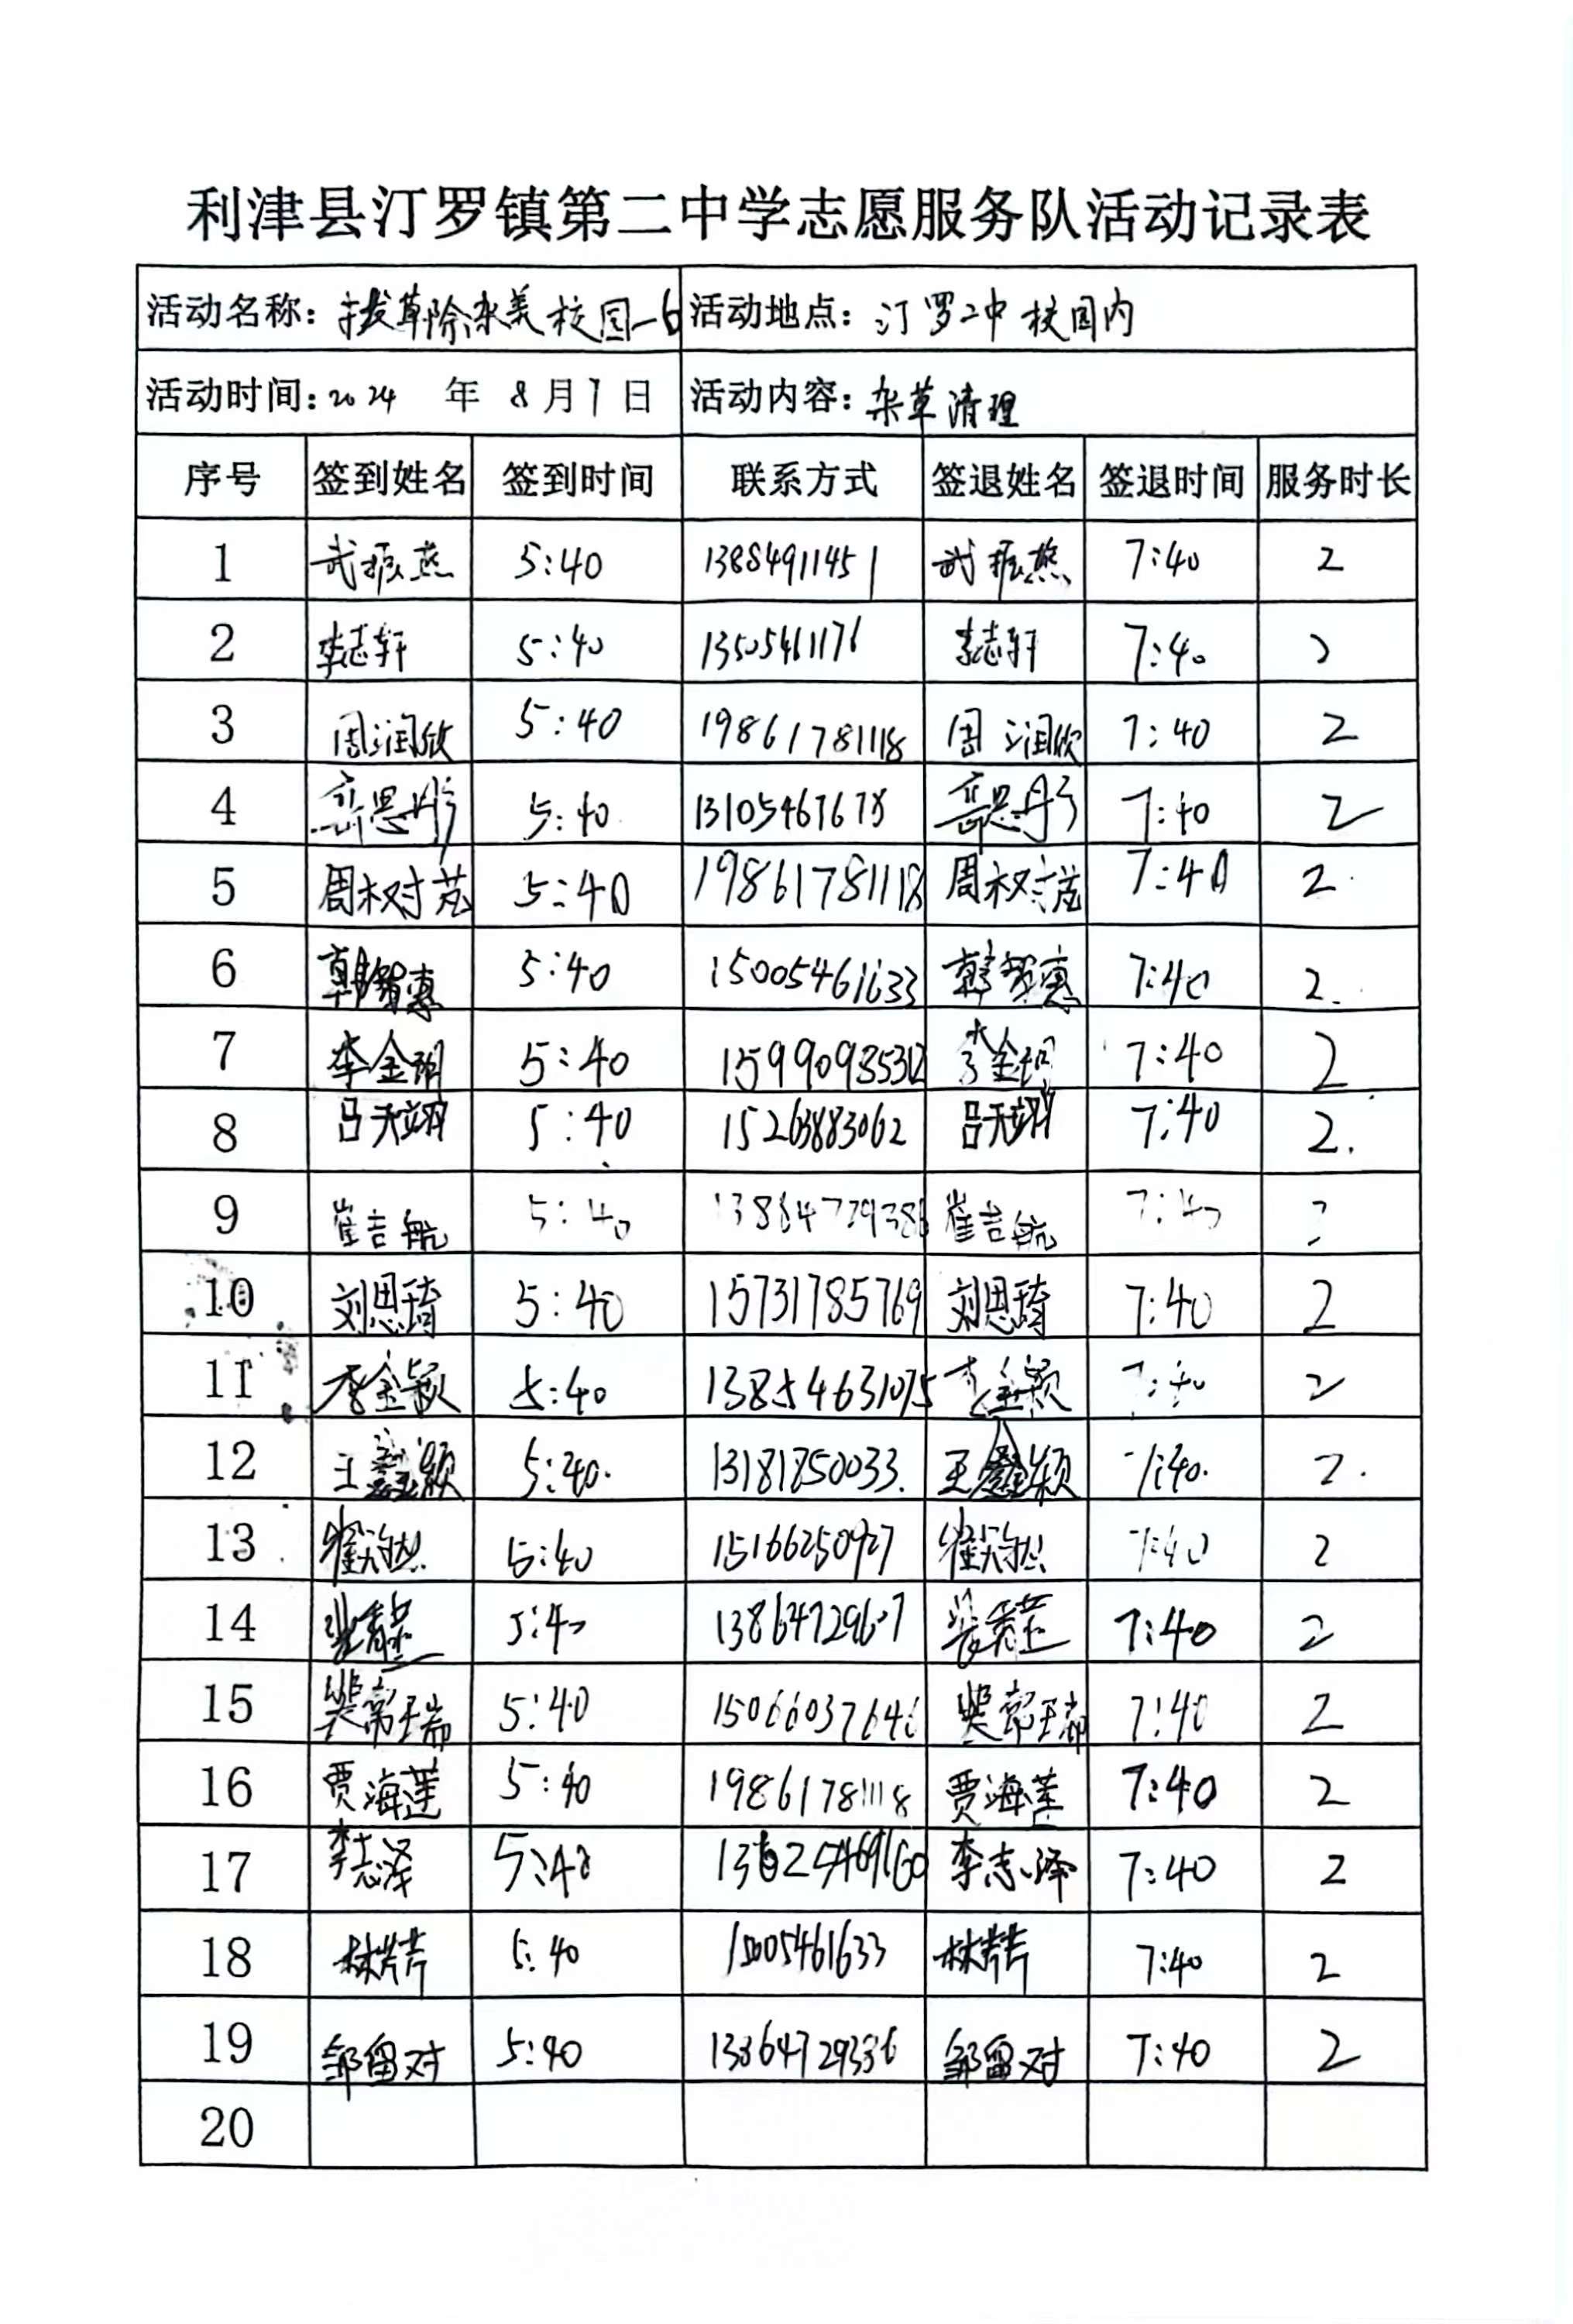 利津县汀罗镇第二中学志愿服务队活动记录表
活动名称：拔草除杂美校园-6 活动地点：汀罗二中校园内
活动时间：2024 年 8月7日 活动内容：杂草清理
序号 签到姓名 签到时间 联系方式 签退姓名 签退时间 服务时长
1 武振燕 5:40 13884911451 武振燕 7:40 2
2 李志轩 5:40 13505461176 李志轩 7:40 2
3 周润欣 5:40 19861781118 周润欣 7:40 2
4 思彤 5:40 13105467678 思彤 7:40 2
5 周权对茫 5:40 19861781118 周权对茫 7:40 2
6 韩智惠 5:40 15005461633 韩智惠 7:40 2.
7 李金 5:40 15990985312 李金 7:40 2
8 吕天翊 5:40 15263883062 吕天翊 7:40 2.
9 崔吉航 5:40 崔吉航 7:40 2
10 刘思琦 5:40 15731785769 刘思琦 7:40 2
11 李金颖 5:40 13854631075 李金颖 7:40 2
12 王鑫颖 5:40. 13181850033. 王鑫颖 7:40. 2.
13 崔 5:40 15166250927 崔 7:40 2
14 5:40 13864729607 7:40 2
15 瑞 5:40 15066037646 瑞 7:40 2
16 贾海莲 5:40 19861781118 贾海莲 7:40 2
17 李志泽 5:40 李志泽 7:40 2
18 林芹芹 5:40 15005461633 林芹芹 7:40 2
19 邹留对 5:40 13864729336 邹留对 7:40 2
20